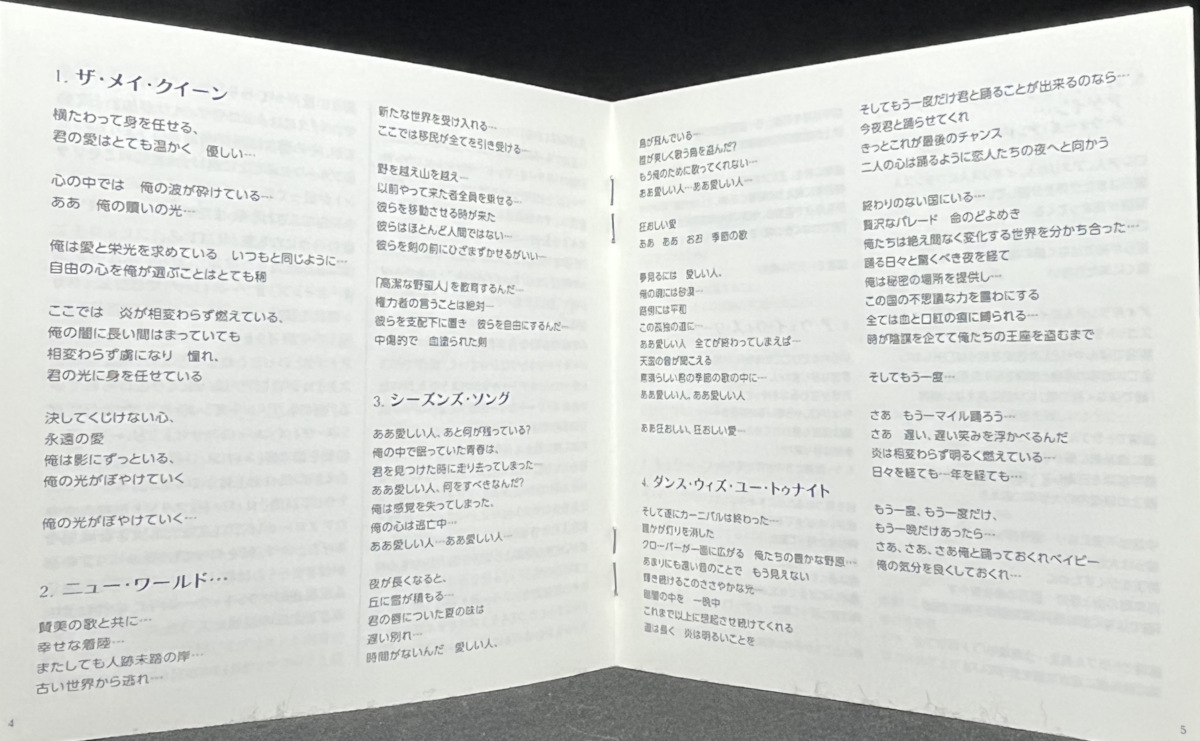 1. ザ・メイ・クイーン
横たわって身を任せる、
君の愛はとても温かく　優しい…
心の中では　俺の波が砕けている…
ああ　俺の贖いの光…
俺は愛と栄光を求めている　いつもと同じように…
自由の心を俺が選ぶことはとても稀
ここでは　炎が相変わらず燃えている、
俺の闇に長い間はまっていても
相変わらず虜になり　憧れ、
君の光に身を任せている
決してくじけない心、
永遠の愛
俺は影にずっといる、
俺の光がぼやけていく
俺の光がぼやけていく…
2. ニュー・ワールド…
賛美の歌と共に…
幸せな着陸…
またしても人跡未踏の岸…
古い世界から逃れ…
4
新たな世界を受け入れる…
ここでは移民が全てを引き受ける…
野を越え山を越え…
以前やって来た者全員を乗せる…
彼らを移動させる時が来た
彼らはほとんど人間ではない…
彼らを剣の前にひざまずかせるがいい…
「高潔な野蛮人」を教育するんだ…
権力者の言うことは絶対…
彼らを支配下に置き　彼らを自由にするんだ…
中傷的で　血塗られた剣
3. シーズンズ・ソング
ああ愛しい人、あと何が残っている?
俺の中で眠っていた青春は、
君を見つけた時に走り去ってしまった…
ああ愛しい人、何をすべきなんだ?
俺は感覚を失ってしまった、
俺の心は逃亡中…
ああ愛しい人…ああ愛しい人…
夜が長くなると、
丘に雪が積もる…
君の唇についた夏の味は
遅い別れ…
時間がないんだ　愛しい人、
鳥が飛んでいる…
誰が美しく歌う鳥を盗んだ?
もう俺のために歌ってくれない…
ああ愛しい人…ああ愛しい人…
狂おしい愛
ああ　ああ　おお　季節の歌
夢見るには　愛しい人、
俺の魂には砂漠…
には平和
この孤独の道に…
ああ愛しい人　全てが終わってしまえば…
天国の音が聞こえる
素晴らしい君の季節の歌の中に…
ああ愛しい人、ああ愛しい人
ああ狂おしい、狂おしい愛…
4. ダンス・ウィズ・ユー・トゥナイト
そして遂にカーニバルは終わった…
誰かが灯りを消した
クローバーが一面に広がる　俺たちの豊かな野原…
あまりにも遠い昔のことで　もう見えない
輝き続けるこのささやかな光…
暗闇の中を　一晩中
これまで以上に想起させ続けてくれる
道は長く　炎は明るいことを
そしてもう一度だけ君と踊ることが出来るのなら…
今夜君と踊らせてくれ
きっとこれが最後のチャンス
二人の心は踊るように恋人たちの夜へと向かう
終わりのない国にいる…
贅沢なパレード　命のどよめき
俺たちは絶え間なく変化する世界を分かち合った…
踊る日々と驚くべき夜を経て
俺は秘密の場所を提供し…
この国の不思議な力を露わにする
全ては血と口紅の痕に縛られる…
時が陰謀を企てて俺たちの王座を盗むまで
そしてもう一度…
さあ　もう一マイル踊ろう…
さあ　遅い、遅い笑みを浮かべるんだ
炎は相変わらず明るく燃えている…
日々を経ても…年を経ても…
もう一度、もう一度だけ、
もう一晩だけあったら…
さあ、さあ、さあ俺と踊っておくれベイビー
俺の気分を良くしておくれ…
5